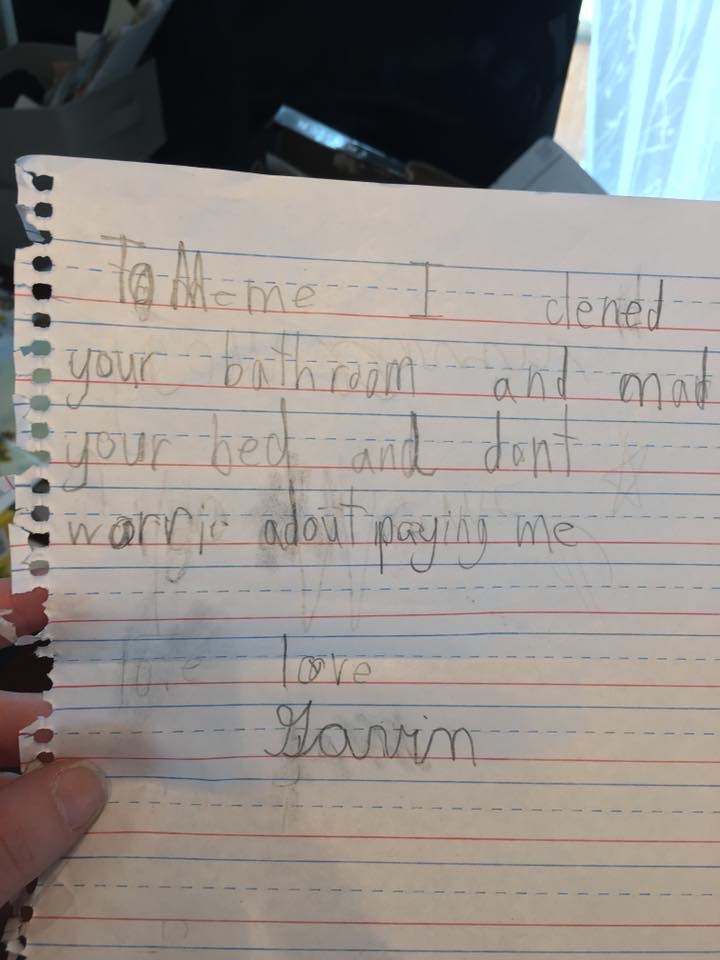 To Meme I clened
your bathroom and mad
your bed and dont
worrie adout paying me
love love
Gavin